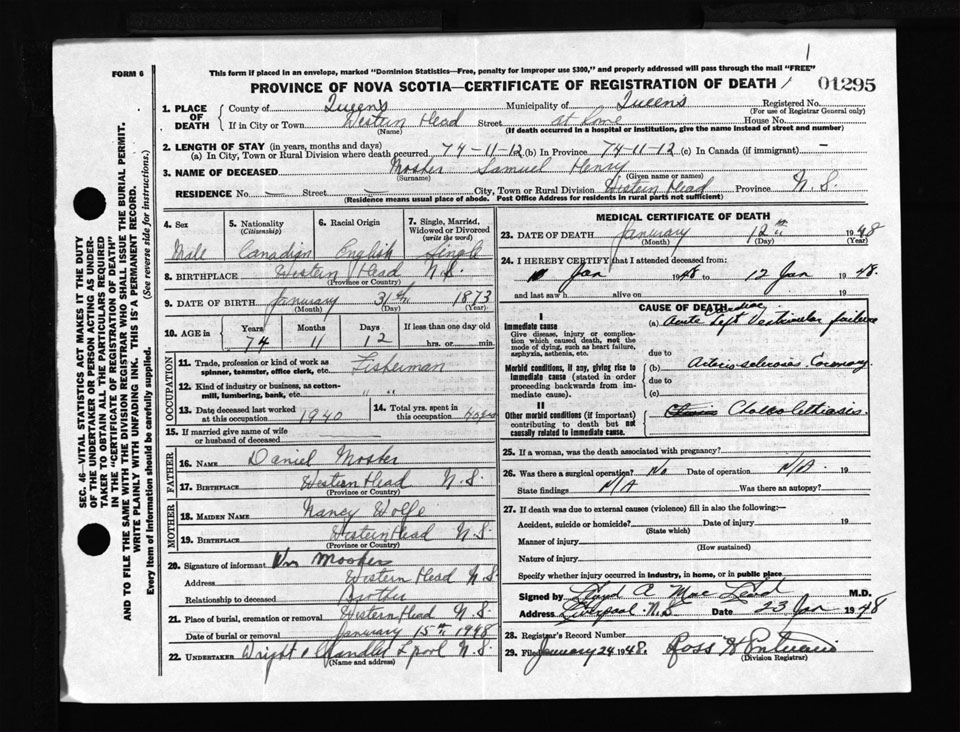 1
FORM 6
This form if placed in an envelope, marked "Dominion Statistics—Free, penalty for improper use $300," and properly addressed will pass through the mail "FREE"
PROVINCE OF NOVA SCOTIA—CERTIFICATE OF REGISTRATION OF DEATH
01295
1. PLACE OF DEATH
County of Queens Municipality of Queens Registered No.
(For use of Registrar General only)
If in City or Town Western Head Street at home House No.
(Name) (If death occurred in a hospital or institution, give the name instead of street and number)
2. LENGTH OF STAY (in years, months and days)
(a) In City, Town or Rural Division where death occurred 74-11-12 (b) In Province 74-11-12 (c) In Canada (if immigrant) —
3. NAME OF DECEASED Mosher Samuel Henry
(Surname) (Given name or names)
RESIDENCE No. — Street — City, Town or Rural Division Western Head Province N.S.
(Residence means usual place of abode. Post Office Address for residents in rural parts not sufficient)
4. Sex 5. Nationality (Citizenship) 6. Racial Origin 7. Single, Married, Widowed or Divorced (write the word)
Male Canadian English Single
8. BIRTHPLACE Western Head N.S.
(Province or Country)
9. DATE OF BIRTH January 31st 1873
(Month) (Day) (Year)
10. AGE in Years Months Days If less than one day old
74 11 12 hrs. or min.
OCCUPATION
11. Trade, profession or kind of work as spinner, teamster, office clerk, etc. Fisherman
12. Kind of industry or business, as cotton-mill, lumbering, bank, etc. " "
13. Date deceased last worked at this occupation 1940
14. Total yrs. spent in this occupation
15. If married give name of wife or husband of deceased —
FATHER
16. NAME Daniel Mosher
17. BIRTHPLACE Western Head N.S.
(Province or Country)
MOTHER
18. MAIDEN NAME Nancy Wolfe
19. BIRTHPLACE Western Head N.S.
(Province or Country)
20. Signature of informant Wm Mosher
Address Western Head N.S.
Relationship to deceased Brother
21. Place of burial, cremation or removal Western Head N.S.
Date of burial or removal January 15th 1948
22. UNDERTAKER Wright & Chandler L'pool N.S.
(Name and address)
MEDICAL CERTIFICATE OF DEATH
23. DATE OF DEATH January 12th 1948
(Month) (Day) (Year)
24. I HEREBY CERTIFY that I attended deceased from:
Jan 1948 to 12 Jan 1948.
and last saw h alive on 19
CAUSE OF DEATH
I
Immediate cause
Give disease, injury or complication which caused death, not the mode of dying, such as heart failure, asphyxia, asthenia, etc.
(a) Acute Cardiac Left Ventricular failure
due to
Morbid conditions, if any, giving rise to immediate cause (stated in order proceeding backwards from immediate cause).
(b) Arterio-sclerosis. Coronary
due to
(c)
II
Other morbid conditions (if important) contributing to death but not causally related to immediate cause.
Cholelithiasis.
25. If a woman, was the death associated with pregnancy?
26. Was there a surgical operation? No Date of operation N/A 19
State findings N/A Was there an autopsy?
27. If death was due to external causes (violence) fill in also the following:—
Accident, suicide or homicide? Date of injury 19
(State which)
Manner of injury
(How sustained)
Nature of injury
Specify whether injury occurred in industry, in home, or in public place
Signed by Lloyd A. Mac Leod M.D.
Address Liverpool N.S. Date 23 Jan 1948
28. Registrar's Record Number
29. Filed January 24 1948. Ross H
(Division Registrar)
SEC. 46—VITAL STATISTICS ACT MAKES IT THE DUTY
OF THE UNDERTAKER OR PERSON ACTING AS UNDER-
TAKER TO OBTAIN ALL THE PARTICULARS REQUIRED
IN THE "CERTIFICATE OF REGISTRATION OF DEATH"
AND TO FILE THE SAME WITH THE DIVISION REGISTRAR WHO SHALL ISSUE THE BURIAL PERMIT.
WRITE PLAINLY WITH UNFADING INK. THIS IS A PERMANENT RECORD.
Every item of information should be carefully supplied. (See reverse side for instructions.)